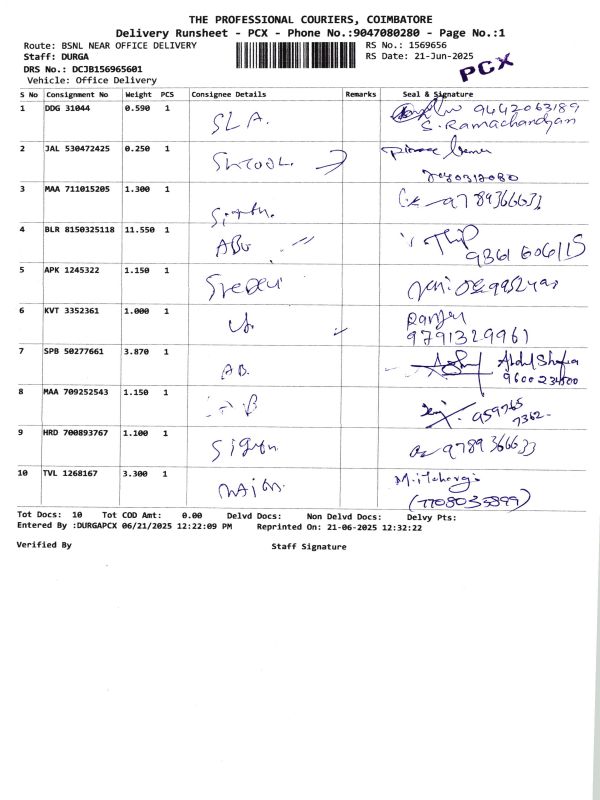 THE PROFESSIONAL COURIERS, COIMBATORE
Delivery Runsheet - PCX - Phone No.:9047080280 - Page No.:1
Route: BSNL NEAR OFFICE DELIVERY RS No.: 1569656
Staff: DURGA RS Date: 21-Jun-2025
PCX
DRS No.: DCJB156965601
Vehicle: Office Delivery
S No Consignment No Weight PCS Consignee Details Remarks Seal & Signature
1 DDG 31044 0.590 1 SLA. 9442063189
S. Ramachandran
2 JAL 530472425 0.250 1
3 MAA 711015205 1.300 1 9789366633
4 BLR 8150325118 11.550 1 ABu 9361606115
5 APK 1245322 1.150 1
6 KVT 3352361 1.000 1 Ranjen
9791329961
7 SPB 50277661 3.870 1 AB. Abdul
9600234800
8 MAA 709252543 1.150 1 959765
7362
9 HRD 700893767 1.100 1 9789366633
10 TVL 1268167 3.300 1
(7708035899)
Tot Docs: 10 Tot COD Amt: 0.00 Delvd Docs: Non Delvd Docs: Delvy Pts:
Entered By :DURGAPCX 06/21/2025 12:22:09 PM Reprinted On: 21-06-2025 12:32:22
Verified By Staff Signature